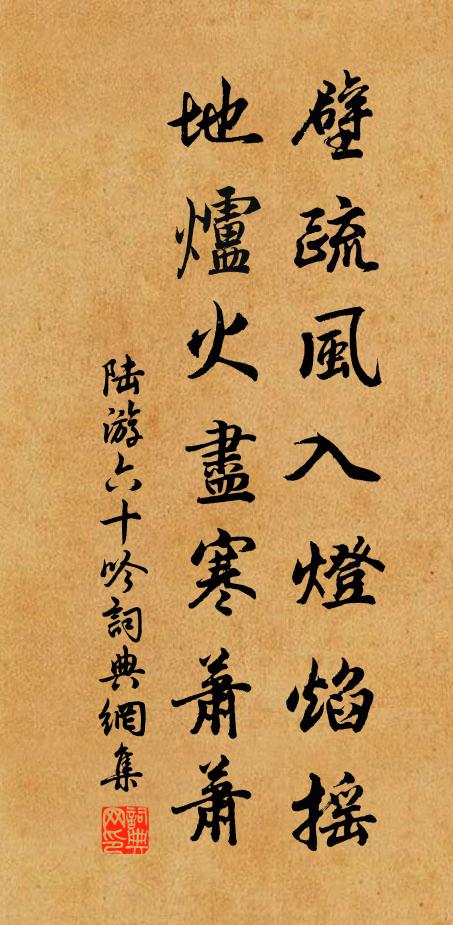 壁疏風入燈焰摇
地爐火盡寒蕭蕭
陆游六十吟詞典網集
詞典网印